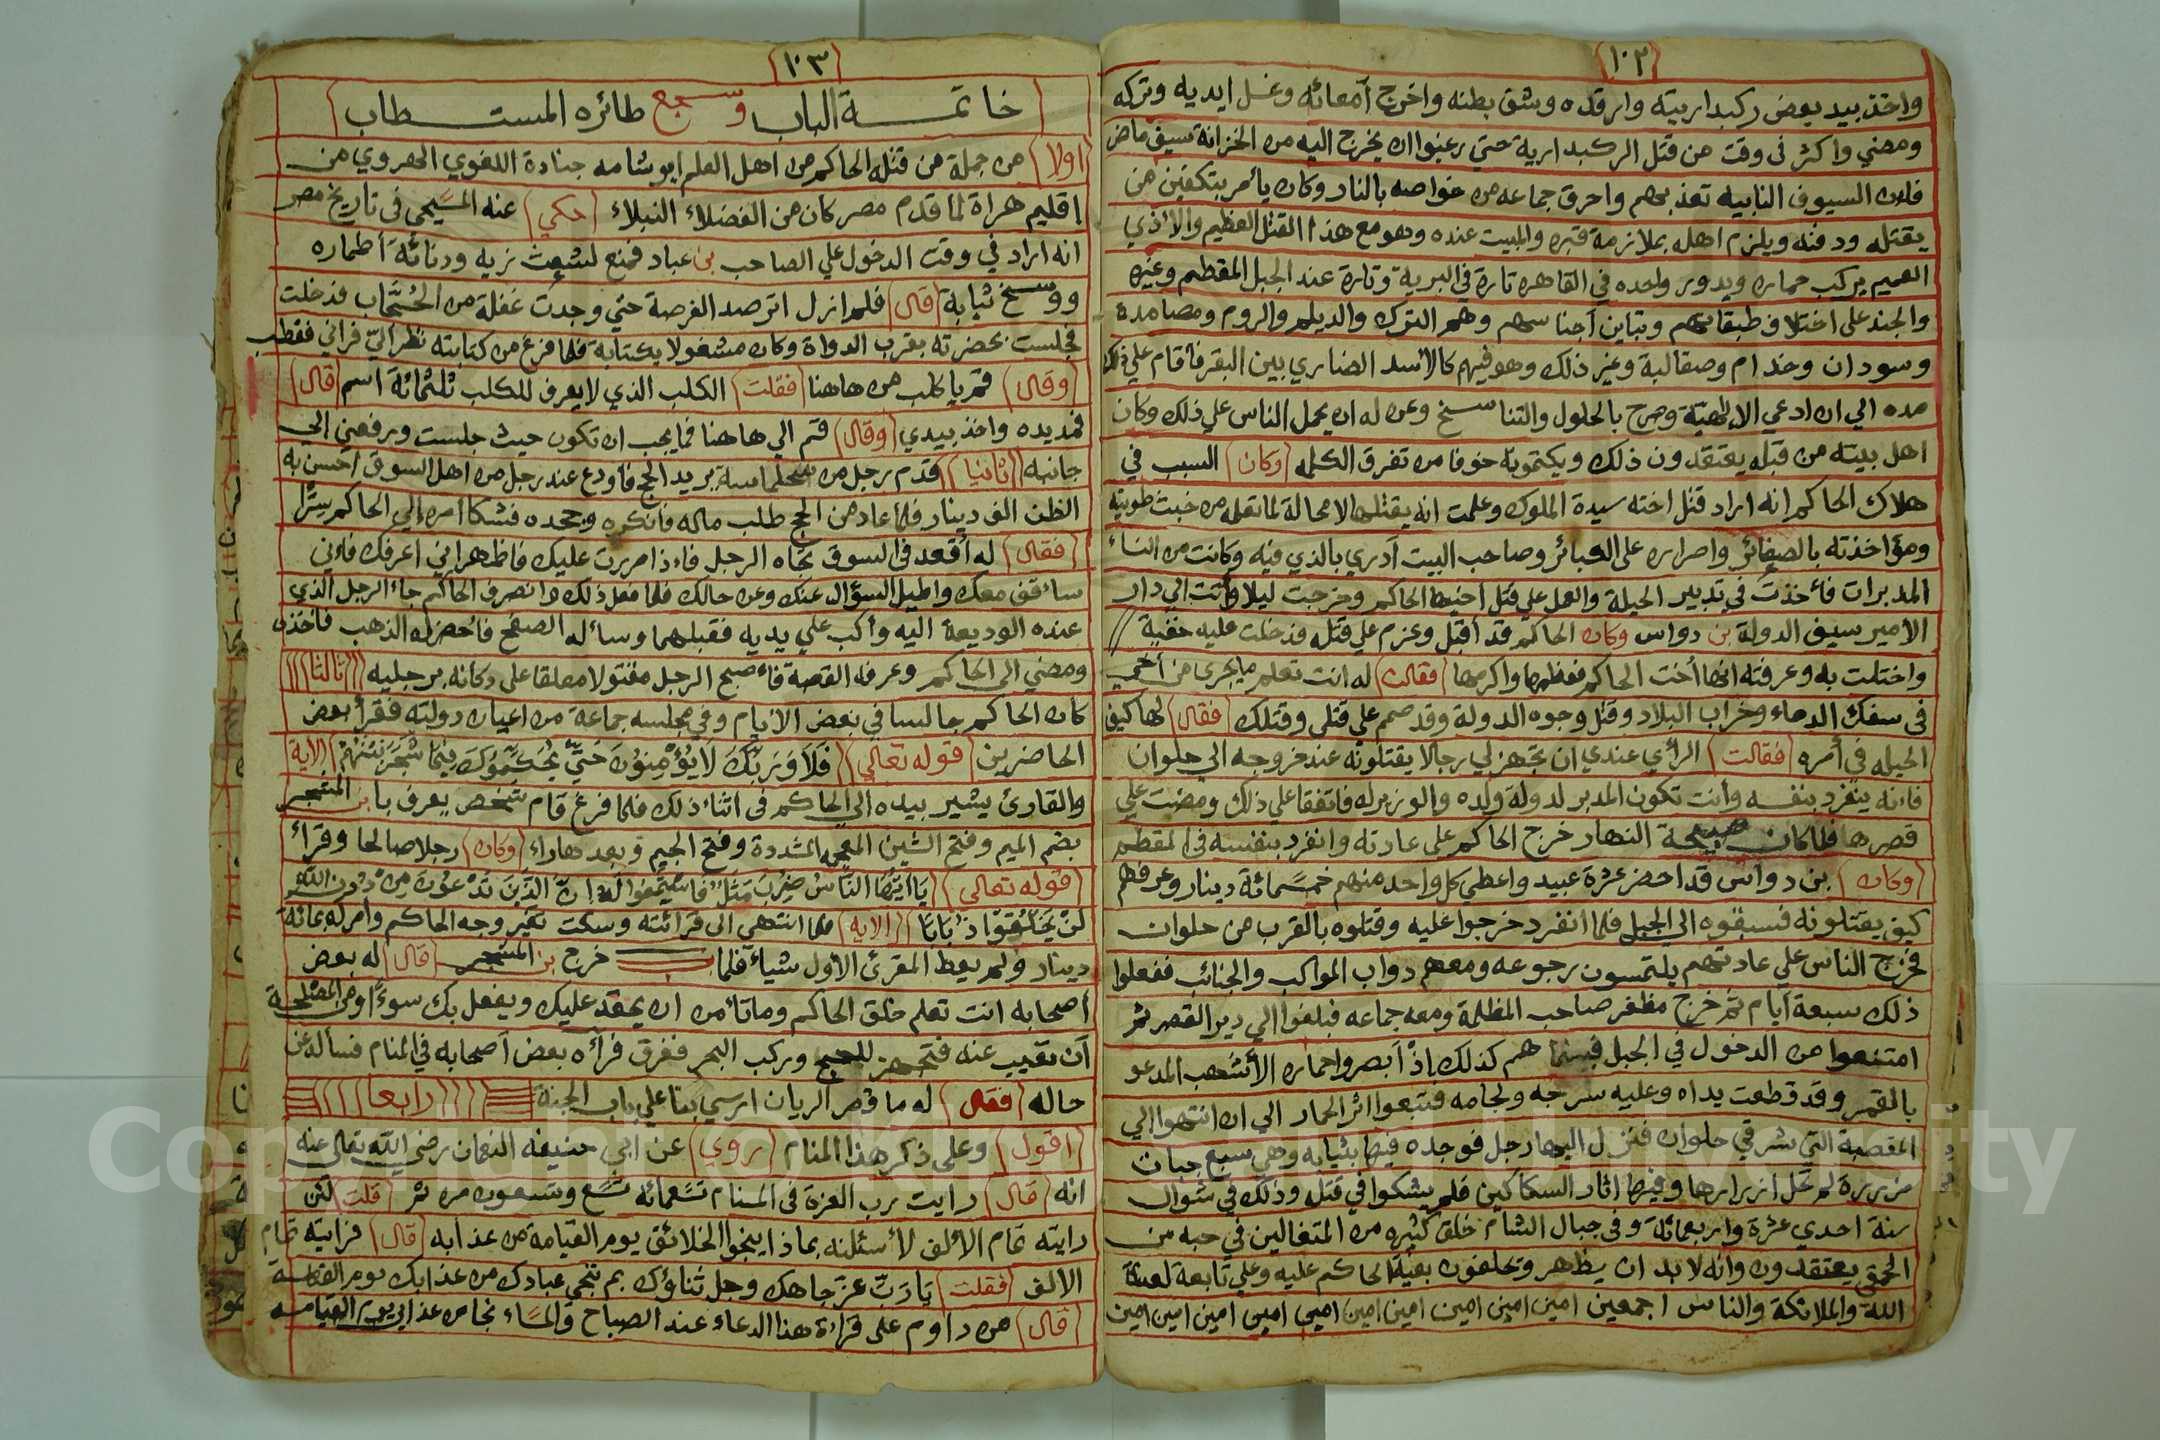 ١٠٢
واخذ بيد بعض ركبداريته وارقده وشق بطنه واخرج أمعائه وغسل ايديه وتركه
ومضي واكثر في وقت من قتل الركبدارية حتي رغبوا ان يخرج اليه من الخزانة سيف ماض
فلان السيوف النابيه تعذبهم واحرق جماعه من خواصه بالنار وكان يأمر بتكفين من
يقتله ودفنه ويلزم اهله بملازمة قبره والمبيت عنده وهو مع هذا القتل العظيم والاذي
العميم يركب حماره ويدور وحده في القاهره تارة في البرية وتارة عند الجبل المقطم وغيره
والجند على اختلاف طبقاتهم وتباين أجناسهم وهم الترك والديلم والروم ومصامدة
وسودان وخدام وصقالبة وغير ذلك وهو فيهم كالأسد الضاري بين البقر فأقام علي ذلك
مده الي ان ادعي الالهيّة وصرح بالحلول والتناسخ وعن له ان يحمل الناس علي ذلك وكان
اهل بيته من قبله يعتقدون ذلك ويكتمونه خوفا من تفرق الكلمه وكان السبب في
هلاك الحاكم انه اراد قتل اخته سيدة الملوك وعلمت انه يقتلها لامحالة لما تعلمه من خبث طويته
ومؤاخذته بالصغائر واصراره على الكبائر وصاحب البيت أدري بالذي فيه وكانت من النساء
المدبرات فأخذت في تدبير الحيلة والعمل علي قتل أخيها الحاكم وخرجت ليلا وأتت الي دار
الأمير سيف الدولة بن دواس وكان الحاكم قد أقبل وعزم علي قتله فدخلت عليه خفية
واختلت به وعرفته انها أخت الحاكم فعظمها واكرمها فقالت له انت تعلم ما يجري من أخي
في سفك الدماء وخراب البلاد وقتل وجوه الدولة وقد صمم على قتلي وقتلك فقال لها كيف
الحيله في أمره فقالت الرأي عندي ان تجهز لي رجالا يقتلونه عند خروجه الي حلوان
فانه ينفرد بنفسه وأنت تكون المدبر لدولة ولده والوزير له فاتفقا علي ذلك ومضت علي
قصرها فلما كان صبيحة النهار خرج الحاكم على عادته وانفرد بنفسه في المقطم
وكان بن دواس قد احضر عشرة عبيد واعطي كل واحد منهم خمسمائة دينار وعرفهم
كيف يقتلونه فسبقوه الى الجبل فلما انفرد خرجوا عليه وقتلوه بالقرب من حلوان
فخرج الناس علي عادتهم يلتمسون رجوعه ومعهم دواب المواكب والجنائب ففعلوا
ذلك سبعة أيام ثم خرج مظفر صاحب المظلمة ومعه جماعه فبلغوا الي دير القصر ثم
امتنعوا من الدخول في الجبل فبينما هم كذلك إذْ أبصروا حماره الأشهب المدعو
بالقمر وقد قطعت يداه وعليه سرجه ولجامه فتتبعوا اثر الحمار الي ان انتهوا الي
المقصبة التي شرقي حلوان فنزل اليها رجل فوجده فيها بثيابه وهي سبع جبات
مزررة لم تحل ازرارها وفيها اثار السكاكين فلم يشكوا في قتله وذلك في شوال
سنة احدي عشرة واربعمائة وفي جبال الشام خلق كثيره من المتغالين في حبه من
الحمق يعتقدون وانه لابد ان يظهر ويحلفون بغيبة الحاكم عليه وعلي تابعه لعنة
الله والملائكة والناس اجمعين امين امين امين امين امين امين امين امين امين امين
١٠٣
خاتمـــة الباب وسـجـع طائره المستــطاب
اولا من جملة من قتله الحاكم من اهل العلم ابو شامه جنادة اللغوي الهروي من
إقليم هراة لما قدم مصر كان من الفضلاء النبلاء حكي عنه المسيحي في تاريخ مصر
انه اراد في وقت الدخول علي الصاحب بن عباد فمنع لشعث زيه ودنائة أطماره
ووسخ ثيابة قال فلم ازل اترصد الفرصة حتي وجدت غفلة من الحُجّاب فدخلت
فجلست بحضرته بقرب الدواة وكان مشغولا بكتابة فلما فرغ من كتابته نظر اليّ فراني فقطب
وقال قم يا كلب من هاهنا فقلت الكلب الذي لايعرف للكلب ثلثمائة اسم قال
فمد يده واخذ بيدي وقال قم الي هاهنا فما يجب ان تكون حيث جلست ورفعني الي
جانبه ثانيا قدم رجل من سجلماسة يريد الحج فاودع عند رجل من اهل السوق احسن به
الظن الف دينار فلما عاد من الحج طلب ماله فأنكره وجحده فشكا امره الي الحاكم سرّا
فقال له أقعد في السوق تجاه الرجل فاذا مررت عليك فاظهر اني اعرفك فانني
سأقف معك واطيل السؤال عنك وعن حالك فلما فعل ذلك وانصرف الحاكم جاء الرجل الذي
عنده الوديعة اليه وأكب علي يديه فقبلهما وسأله الصفح فأحضر له الذهب فأخذه
ومضي الى الحاكم وعرفه القصة فاصبح الرجل مقتولا معلقا على دكانه برجليه ثالثا
كان الحاكم جالسا في بعض الأيام وفي مجلسه جماعة من اعيان دولته فقرأ بعض
الحاضرين قوله تعالي فَلَا وَرَبِّكَ لَا يُؤْمِنُونَ حَتَّي يُحَكِّمُوكَ فِيمَا شَجَرَ بَيْنَهُمْ الأية
والقارئ يشير بيده الي الحاكم في اثناء ذلك فلما فرغ قام شخص يعرف بابن المشجر
بضم الميم وفتح الشين المعجمه المشددة وفتح الجيم وبعدها راء وكان رجلا صالحا وقرأ
قوله تعالي يَا أَيُّهَا النَّاسُ ضُرِبَ مَثَلٌ فَاسْتَمِعُوا لَهُ إِنَّ الَّذِينَ تَدْعُونَ مِنْ دُونِ اللَّهِ
لَنْ يَخْلُقُوا ذُبَابًا الأية فلما انتهي الى قرائته وسكت تغير وجه الحاكم وأمر له بمائة
دينار ولم يعط المقرئ الأول شيأ فلما خرج بن المشجر قال له بعض
أصحابه انت تعلم خلق الحاكم وماتأمن ان يحقد عليك ويفعل بك سوءً اومن المصلحة
أن تغيب عنه فتجهز للحج وركب البحر فغرق فرأه بعض أصحابه في المنام فسأله عن
حاله فقال له ما قصر الربان ارسي بنا علي باب الجنة رابعا
اقول وعلى ذكر هذا المنام روي عن ابي حنيفه النعمان رضي الله تعالى عنه
انه قال رايت رب العزة في المنام تسعمائه تسع وتسعون مره ثم قلت لئن
رايته تمام الألف لأسئلنه بماذا ينجوا الخلائق يوم القيامة من عذابه قال فرايته تمام
الالف فقلت يارَبّ عز جاهك وجل ثناؤك بم تنجي عبادك من عذابك يوم القيامة
قال من داوم على قراءة هذا الدعاء عند الصباح والمساء نجا من عذابي يوم القيامه